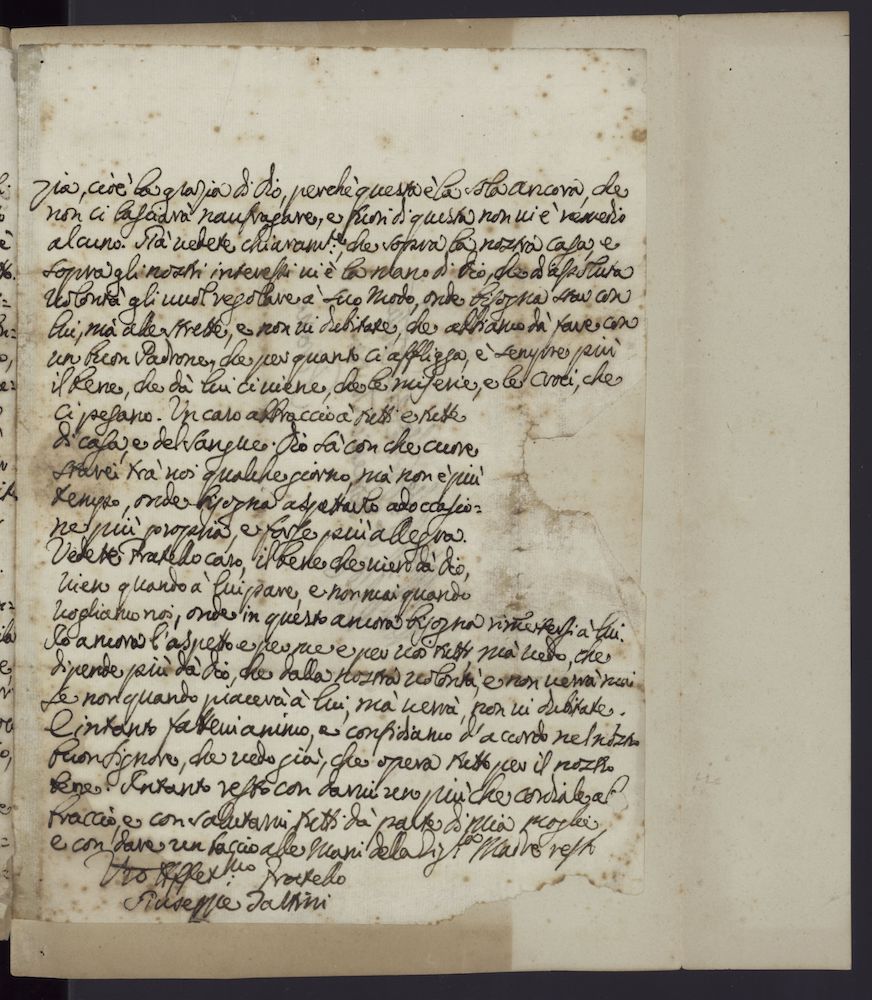 zia, cioè la grazia di Dio, perche questa è la sola ancora, che
non ci lasciarà naufragare, e fuori di questa non vi è remedio
alcuno. Già vedete chiaram.te, che sopra la nostra casa, e
sopra gli nostri interessi vi è la mano di Dio, che d'assoluta
volontà gli vuol regolare à suo modo, onde bisogna star con
lui, mà alle strette, e non vi dubitate, che abbiamo dà fare con
un buon Padrone, che per quanto ci affligga, è sempre più
il bene, che dà lui ci viene, che le miserie, e le Croci, che
ci pesano. Un caro abbraccio à tutti e tutte
di casa, e del sangue. Dio sà con che cuore
starei trà voi qualche giorno, mà non è più
tempo, onde bisogna aspettarlo ad occasio=
ne più propria, e forse più allegra.
Vedete Fratello caro, il bene che vien dà Dio,
vien quando à lui pare, e non mai quando
vogliamo noi, onde in questo ancora bisogna rimettersi à lui.
Io ancora l'aspetto e per me e per voi tutti, mà vedo, che
dipende più dà Dio, che dalla nostra volontà, e non verrà mai
se non quando piacerà à lui, mà verrà, non vi dubitate.
E intanto fattevi animo, e confidiamo d'accordo nel nostro
buon Signore, che vedo già, che opera tutto per il nostro
bene. Intanto resto con darvi un più che cordiale ab
braccio, e con salutarvi tutti dà parte di mia moglie,
e con dare un baccio alle mani della Sig.ra Madre resto
Vro Affez.mo Fratello
Giuseppe